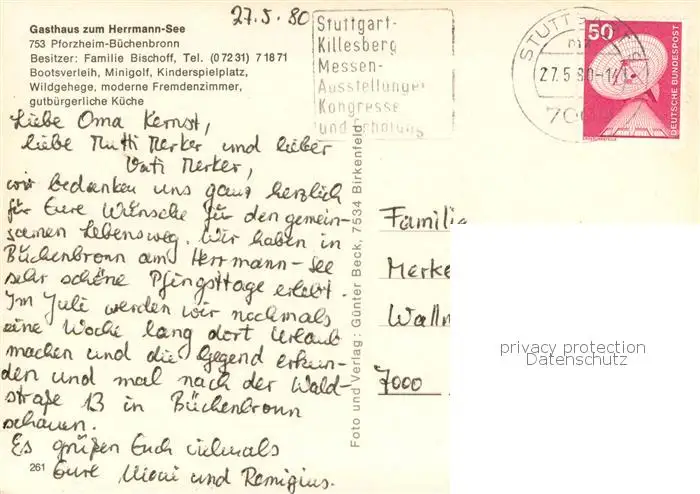 Gasthaus zum Herrmann-See
753 Pforzheim-Büchenbronn
Besitzer: Familie Bischoff, Tel. (07231) 71871
Bootsverleih, Minigolf, Kinderspielplatz,
Wildgehege, moderne Fremdenzimmer,
gutbürgerliche Küche
27.5.80
Stuttgart-
Killesberg
Messen-
Ausstellungen
Kongresse
und Erholung
STUTTGART
27.5.80-1
700
50
DEUTSCHE BUNDESPOST
Liebe Oma Kernst,
liebe Mutti Merker und lieber
Vati Merker,
wir bedanken uns ganz herzlich
für Eure Wünsche für den gemein-
samen Lebensweg. Wir haben in
Büchenbronn am Herrmann-See
sehr schöne Pfingsttage erlebt.
Im Juli werden wir nochmals
eine Woche lang dort Urlaub
machen und die Gegend erkun-
den und mal nach der Wald-
straße 13 in Büchenbronn
schauen.
Es grüßen Euch vielmals
Eure und Remigius.
261
Foto und Verlag: Günter Beck, 7534 Birkenfeld
Familie
Merke
Walln
7000
privacy protection
Datenschutz